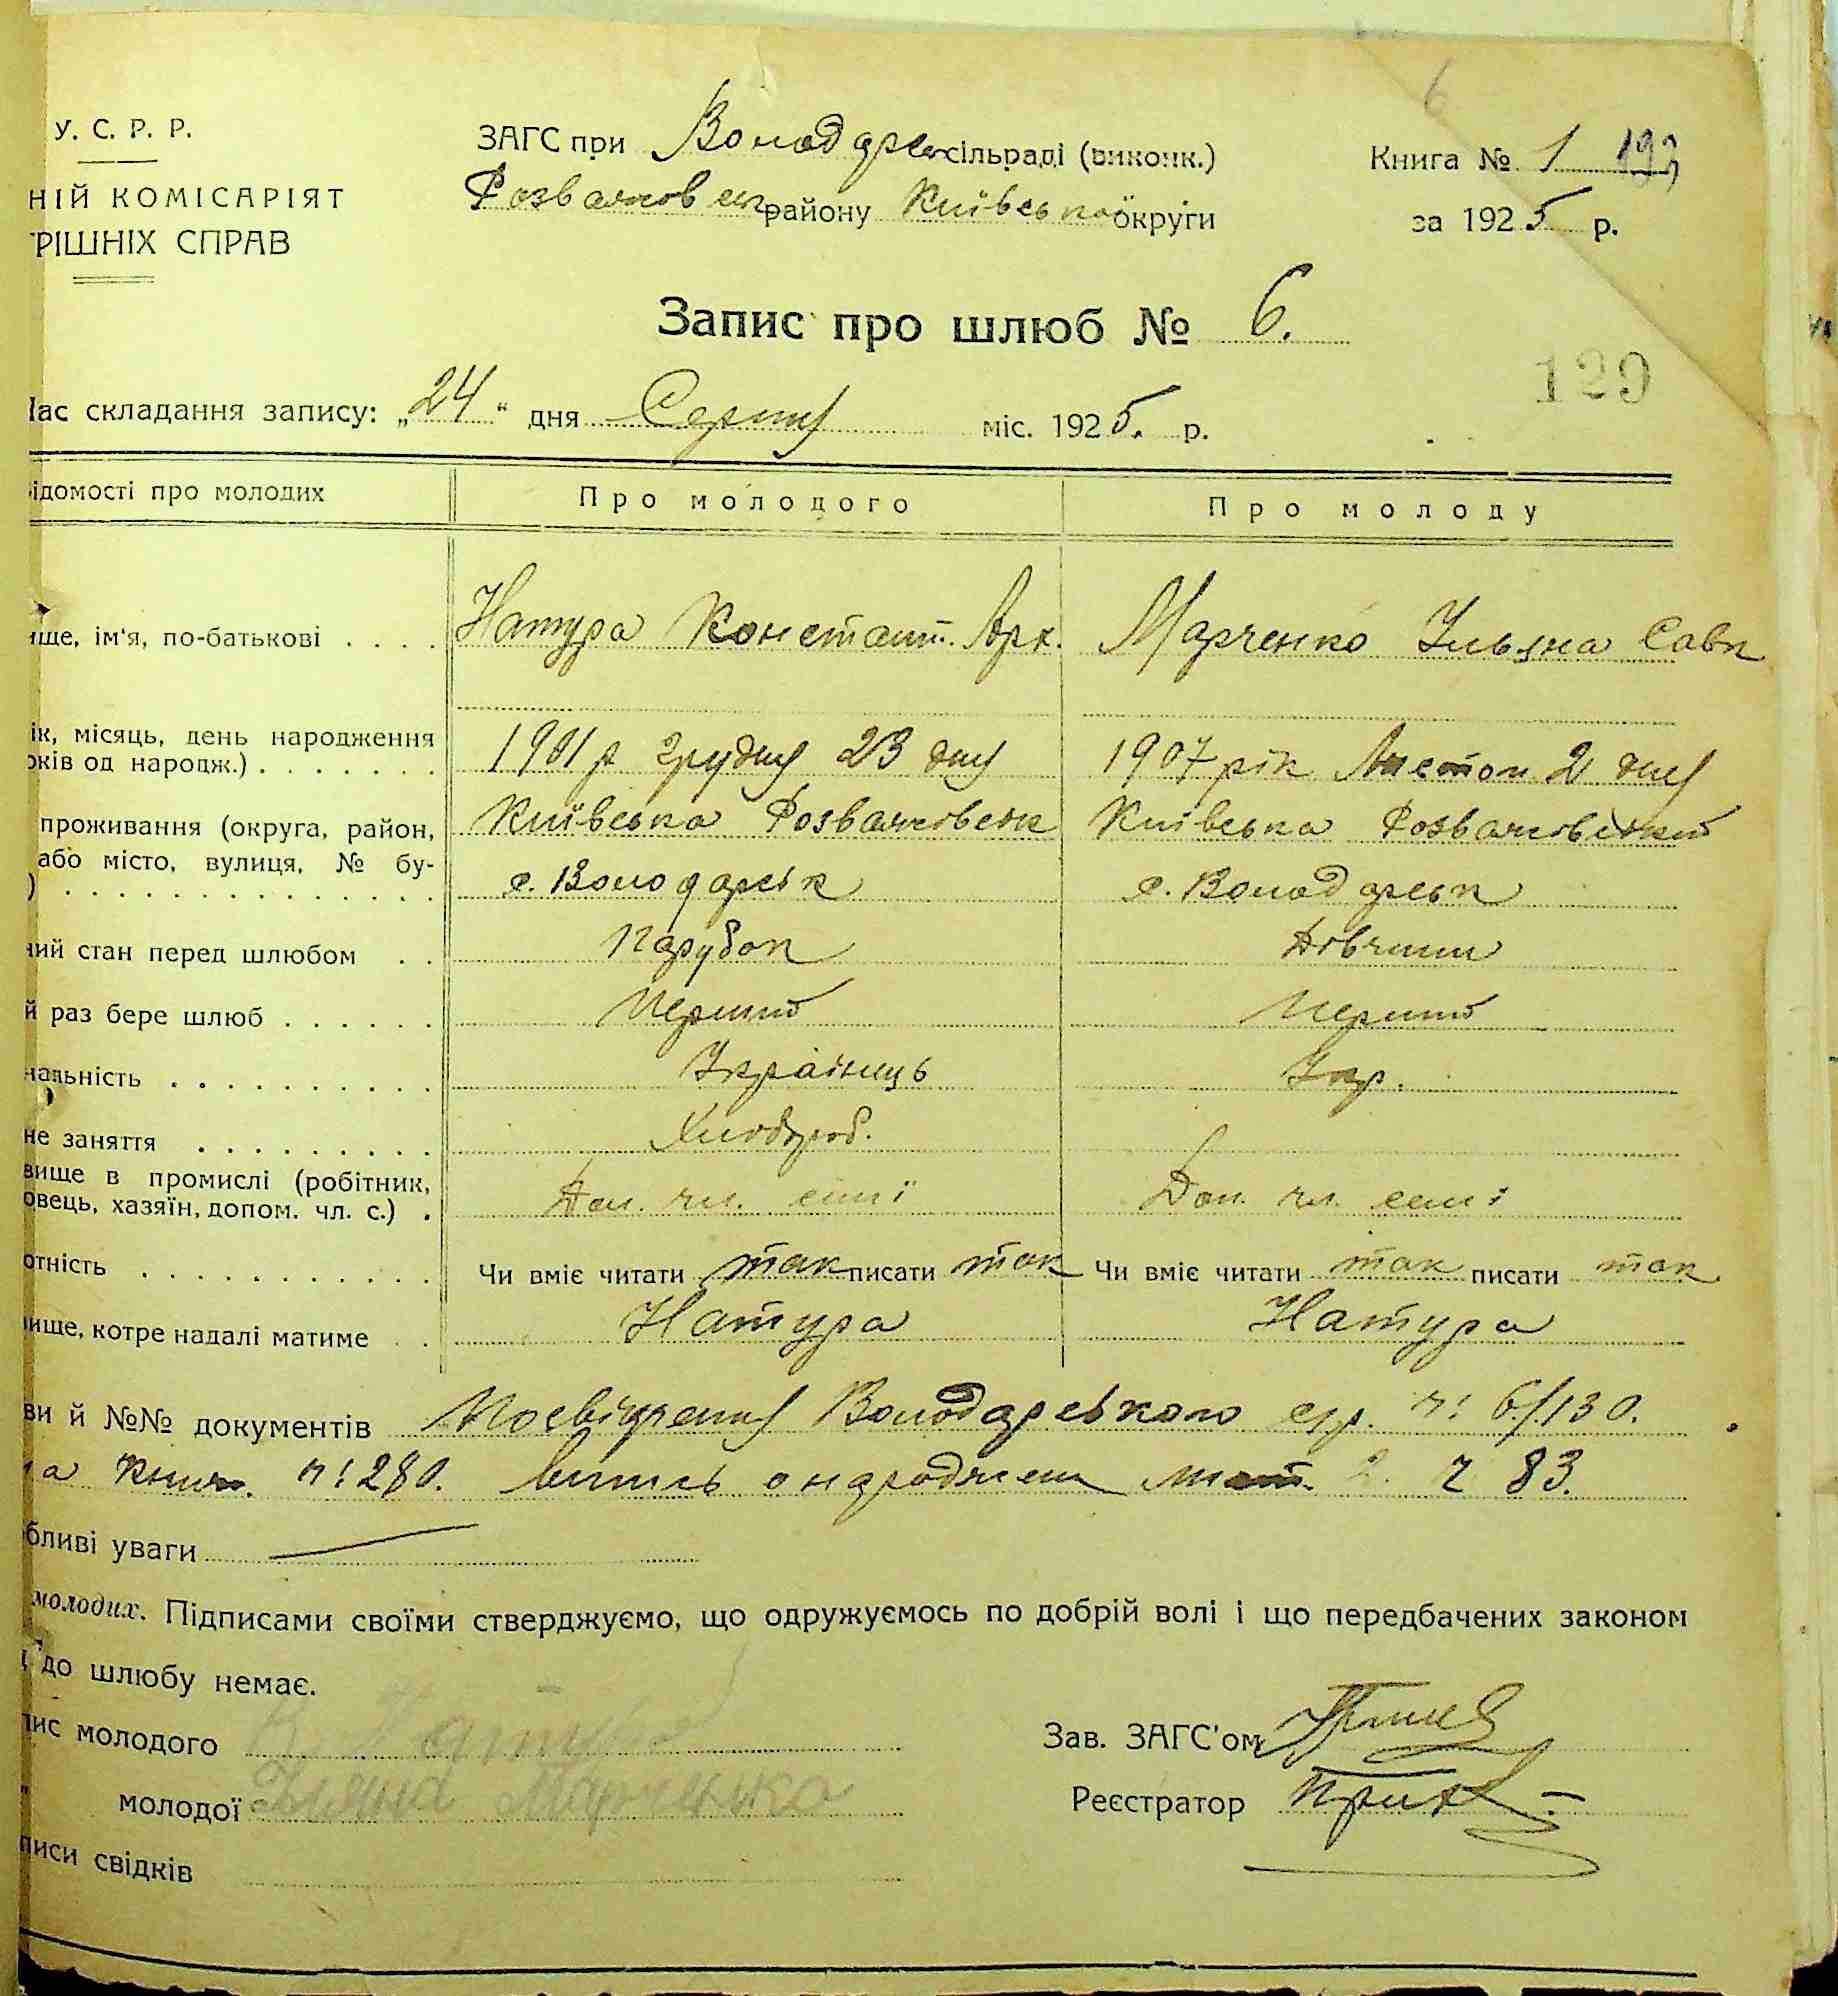 У. С. Р. Р.
НІЙ КОМІСАРІЯТ
РІШНІХ СПРАВ
ЗАГС при Володарс сільраді (виконк.)
Розважовськ району Київської округи
Книга № 1 193
за 1925 р.
6
Запис про шлюб № 6.
129
Час складання запису: „24" дня Серпня міс. 1925. р.
ідомості про молодих Про молодого Про молоду
ище, ім'я, по-батькові . . . . Натура Констант. Арх. Марченко Ульяна Савк
ік, місяць, день народження
оків од народж.) . . . . . . . 1901 р Грудня 23 дня 1907 рік Листоп 2 дня
проживання (округа, район, Київська Розважовськ Київська Розважовський
або місто, вулиця, № бу-
) . . . . . . . . . . . . . . с. Володарськ с. Володарськ
ний стан перед шлюбом . . Парубок Дівчина
й раз бере шлюб . . . . . . Перший Перший
нальність . . . . . . . . . . Українець Укр.
не заняття . . . . . . . . . Хлібороб.
вище в промислі (робітник,
овець, хазяїн, допом. чл. с.) . Доп. чл. сімї Доп. чл. семі
отність . . . . . . . . . . . Чи вміє читати так писати так Чи вміє читати так писати так
ище, котре надалі матиме . . Натура Натура
ви й №№ документів Посвідчення Володарського с/р. ч: 6/130.
а книж. ч: 280. випись о народжен 2. ч 83.
бливі уваги —
молодих. Підписами своїми стверджуємо, що одружуємось по добрій волі і що передбачених законом
до шлюбу немає.
пис молодого К Натура
Зав. ЗАГС'ом
" молодої Уляна Марченко
Реєстратор
писи свідків